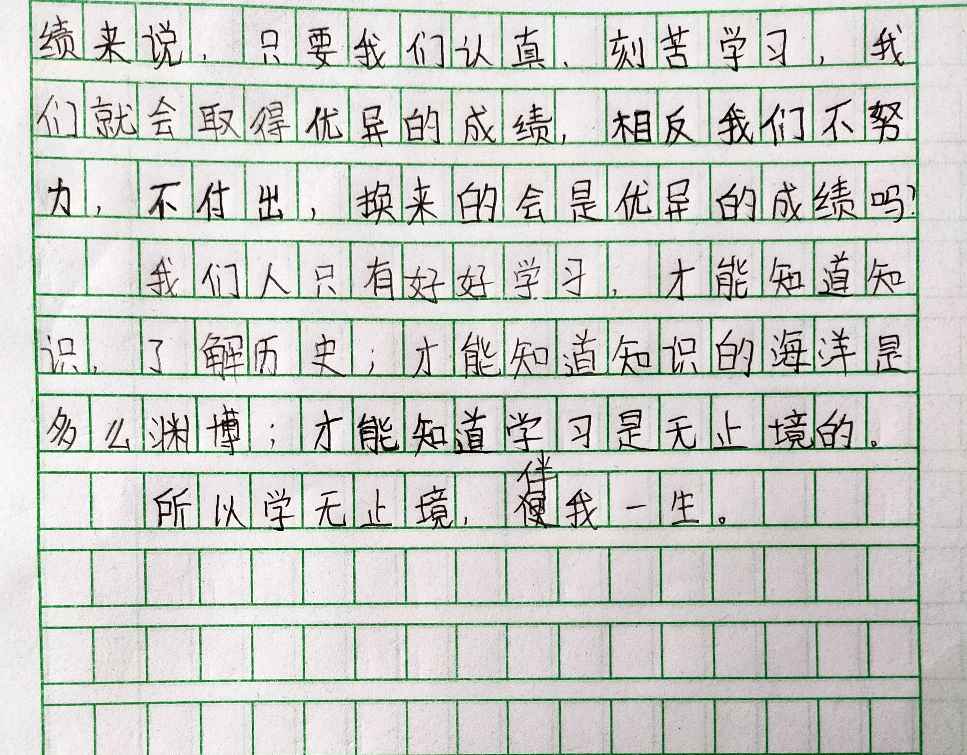 绩来说，只要我们认真、刻苦学习，我
们就会取得优异的成绩，相反我们不努
力，不付出，换来的会是优异的成绩吗？
我们人只有好好学习，才能知道知
识，了解历史；才能知道知识的海洋是
多么渊博；才能知道学习是无止境的。
伴
所以学无止境，我一生。